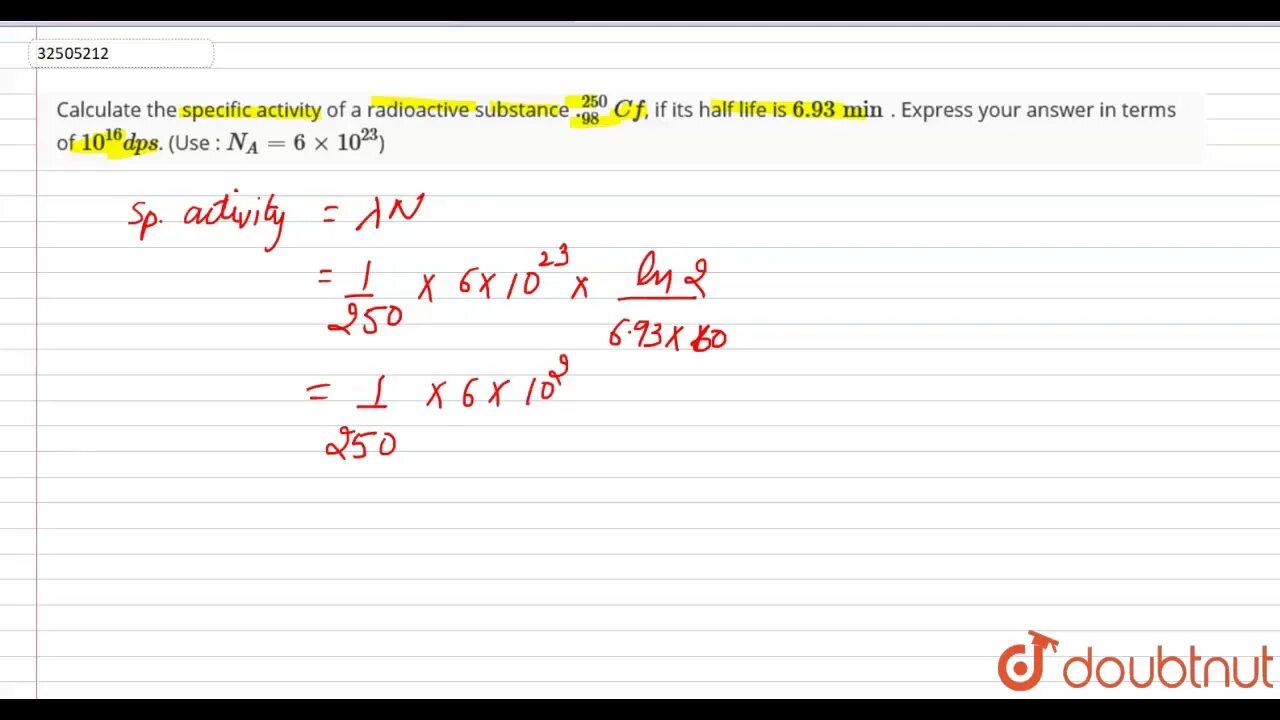 32505212
Calculate the specific activity of a radioactive substance .²⁵⁰₉₈ Cf, if its half life is 6.93 min . Express your answer in terms
of 10¹⁶dps. (Use : N_A = 6 × 10²³)
Sp. activity = λN
= 1/250 × 6×10²³ × ln 2/6.93×60
= 1/250 × 6 × 10²
doubtnut